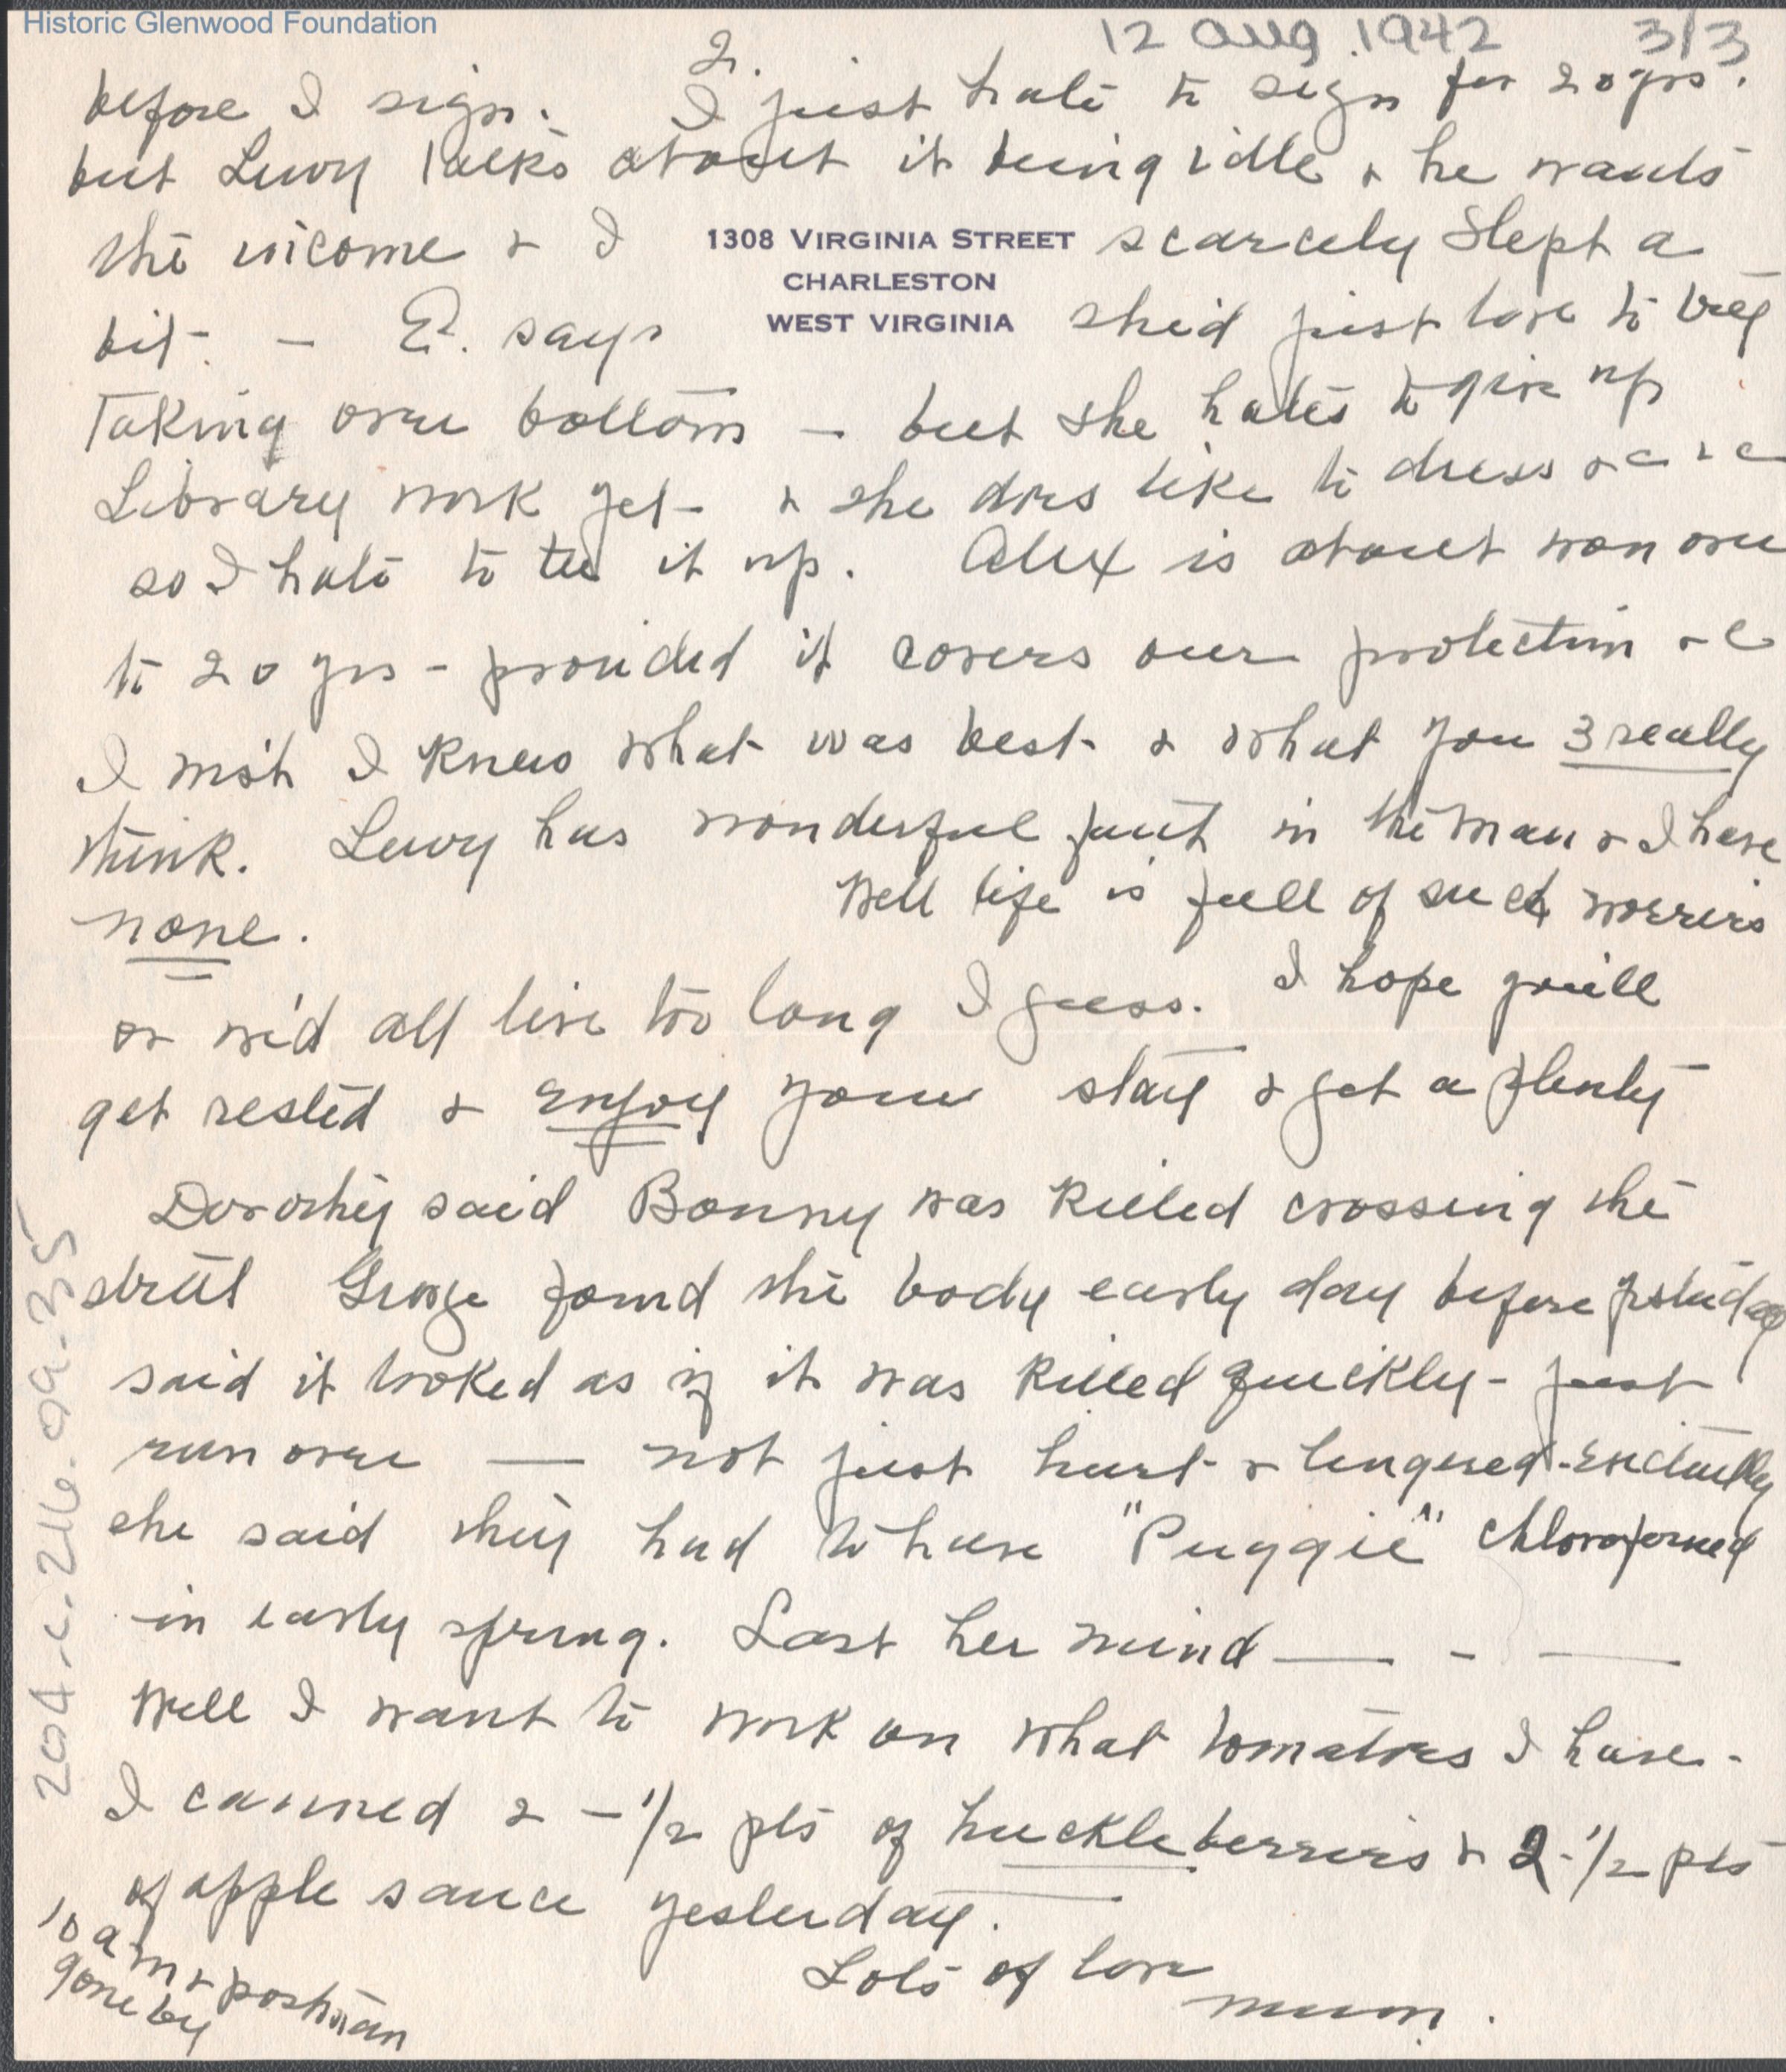 Historic Glenwood Foundation
12 Aug 1942 3/3
2.
before I sign. I just hate to sign for 20 yrs.
but Lewy talks about it being idle & he wants
the income & I scarcely slept a
1308 VIRGINIA STREET
CHARLESTON
WEST VIRGINIA
bit - E. says she'd just love to try
Taking over bottom - but she hates to give up
Library work yet - & she does like to dress &
so I hate to tie it up. Alex is about won over
to 20 yrs - provided it covers our protection &c
I wish I knew what was best & what you 3 really
think. Lewy has wonderful fait in the man & I have
none.
Well life is full of such worries
or we'd all live too long I guess. I hope you'll
get rested & enjoy your stay & get a plenty
Dorothy said Bonny was killed crossing the
street George found the body early day before yesterday
said it looked as if it was killed quickly - just
run over — not just hurt & lingered
she said they had to have "Puggie" chloroformed
in early spring. Lost her mind — - —
Well I want to work on what tomatoes I have -
I canned 2 - 1/2 pts of huckleberries & 2 - 1/2 pts
of apple sauce yesterday.
Lots of love
mum.
10 am & postman
gone by
204.c.216.09.35